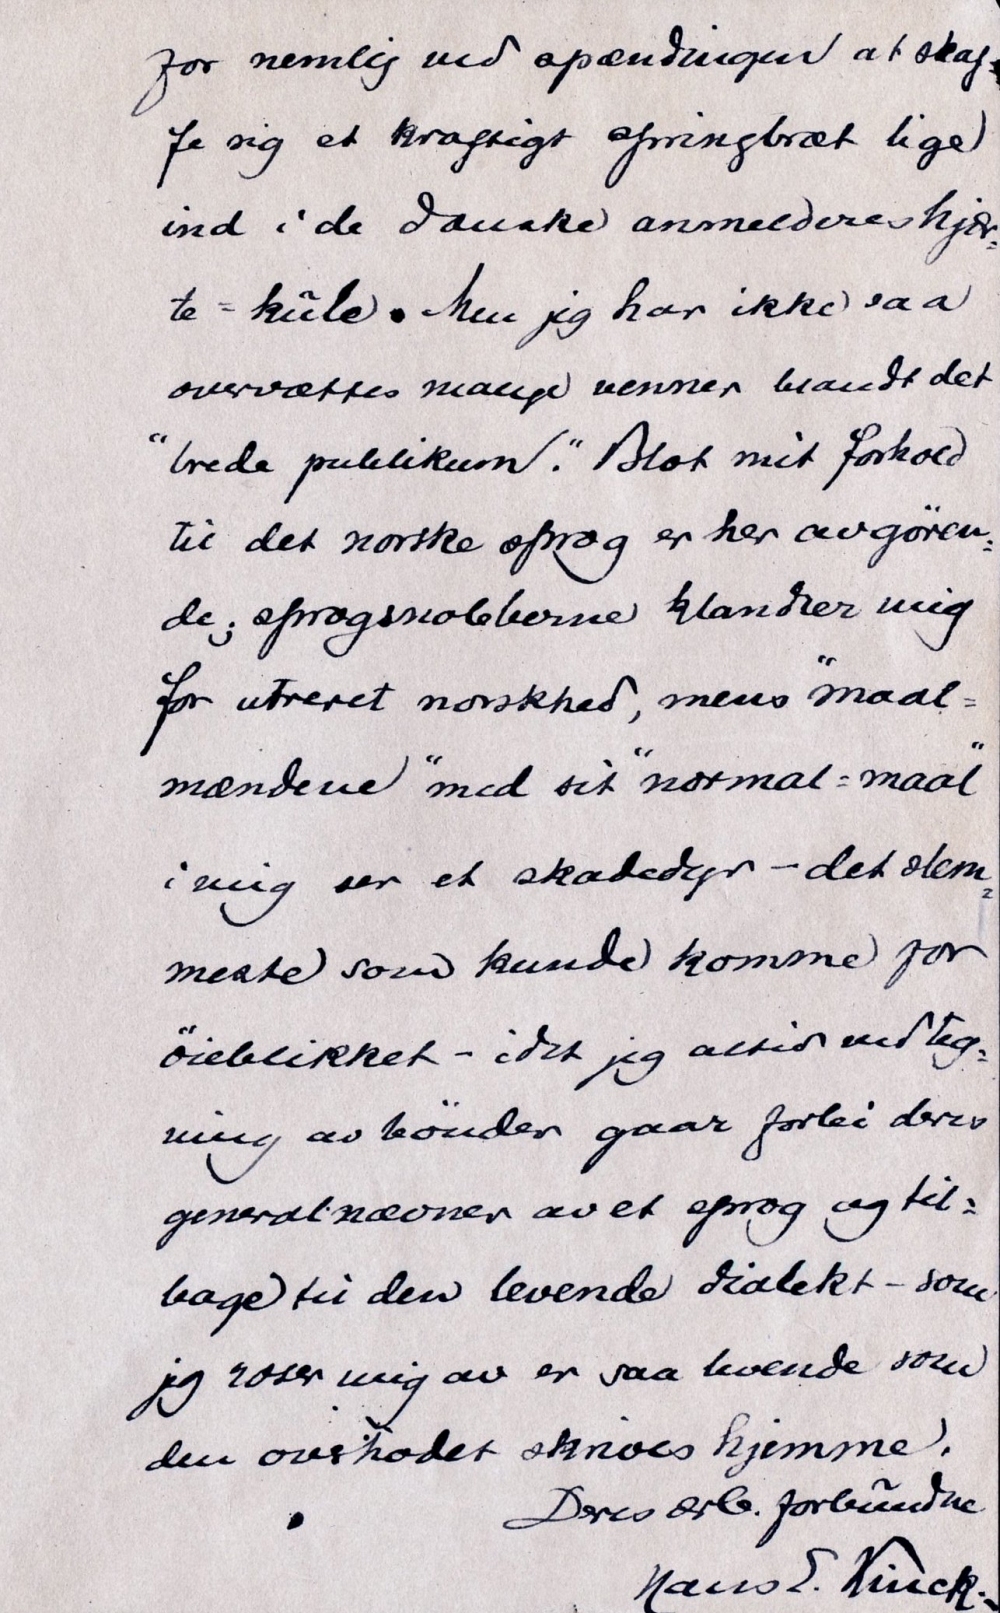 for nemlig ved spændingen at skaf-
fe sig et kraftigt springbræt lige
ind i de danske anmelderes hjær=
te = kũle. Men jeg har ikke saa
overvættes mange venner blandt det
"brede publikum". Blot mit forhold
til det norske sprog er her avgören=
de; sprogsnobberne klandrer mig
for utreret norskhed, mens "maal=
mændene" med sit "normal=maal"
i mig ser et skadedyr – det slem=
meste som kunde komme for
öieblikket – idet jeg altid ved teg=
ning av bönder gaar forbi deres
generalnævner av et sprog og til=
bage til den levende dialekt – som
jeg roser mig av er saa levende som
den overhodet skrives hjemme.
Deres ærb. forbũndne
Hans E. Kinck.